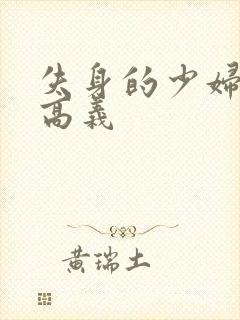 失身的少婦
高義
黃瑞土